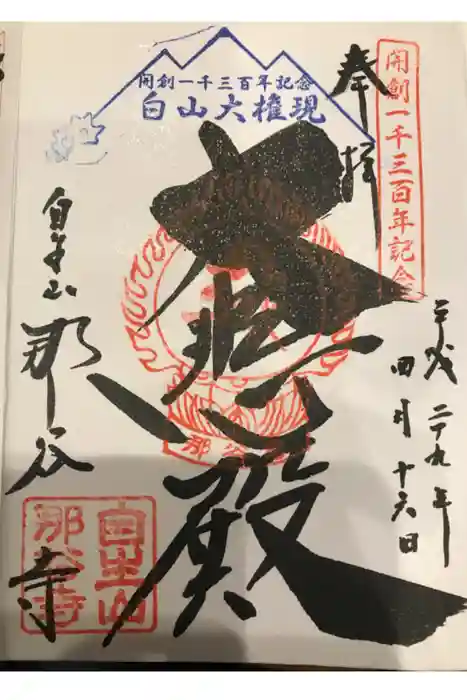 開創一千三百年記念
奉拝
平成二十九年
四月十六日
開創一千三百年記念
白山大権現
大悲殿
自生山
那谷寺
自生山
那谷寺